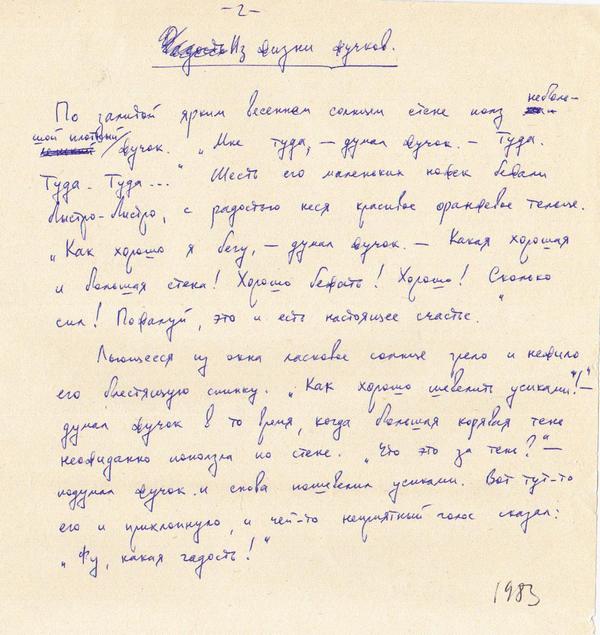 -2-
Из жизни жучков.
По залитой ярким весенним солнцем стене полз неболь-
шой плотный жучок. „Мне туда, — думал жучок. — Туда.
Туда. Туда...“ Шесть его маленьких ножек бежали
быстро-быстро, с радостью неся красивое оранжевое тельце.
„Как хорошо я бегу, — думал жучок. — Какая хорошая
и большая стена! Хорошо бежать! Хорошо! Сколько
сил! Пожалуй, это и есть настоящее счастье.“
Льющееся из окна ласковое солнце грело и нежило
его блестящую спинку. „Как хорошо шевелить усиками!“ —
думал жучок в то время, когда большая корявая тень
неожиданно поползла по стене. „Что это за тень?“ —
подумал жучок и снова пошевелил усиками. Вот тут-то
его и прихлопнуло, и чей-то неприятный голос сказал:
„Фу, какая гадость!“
1983